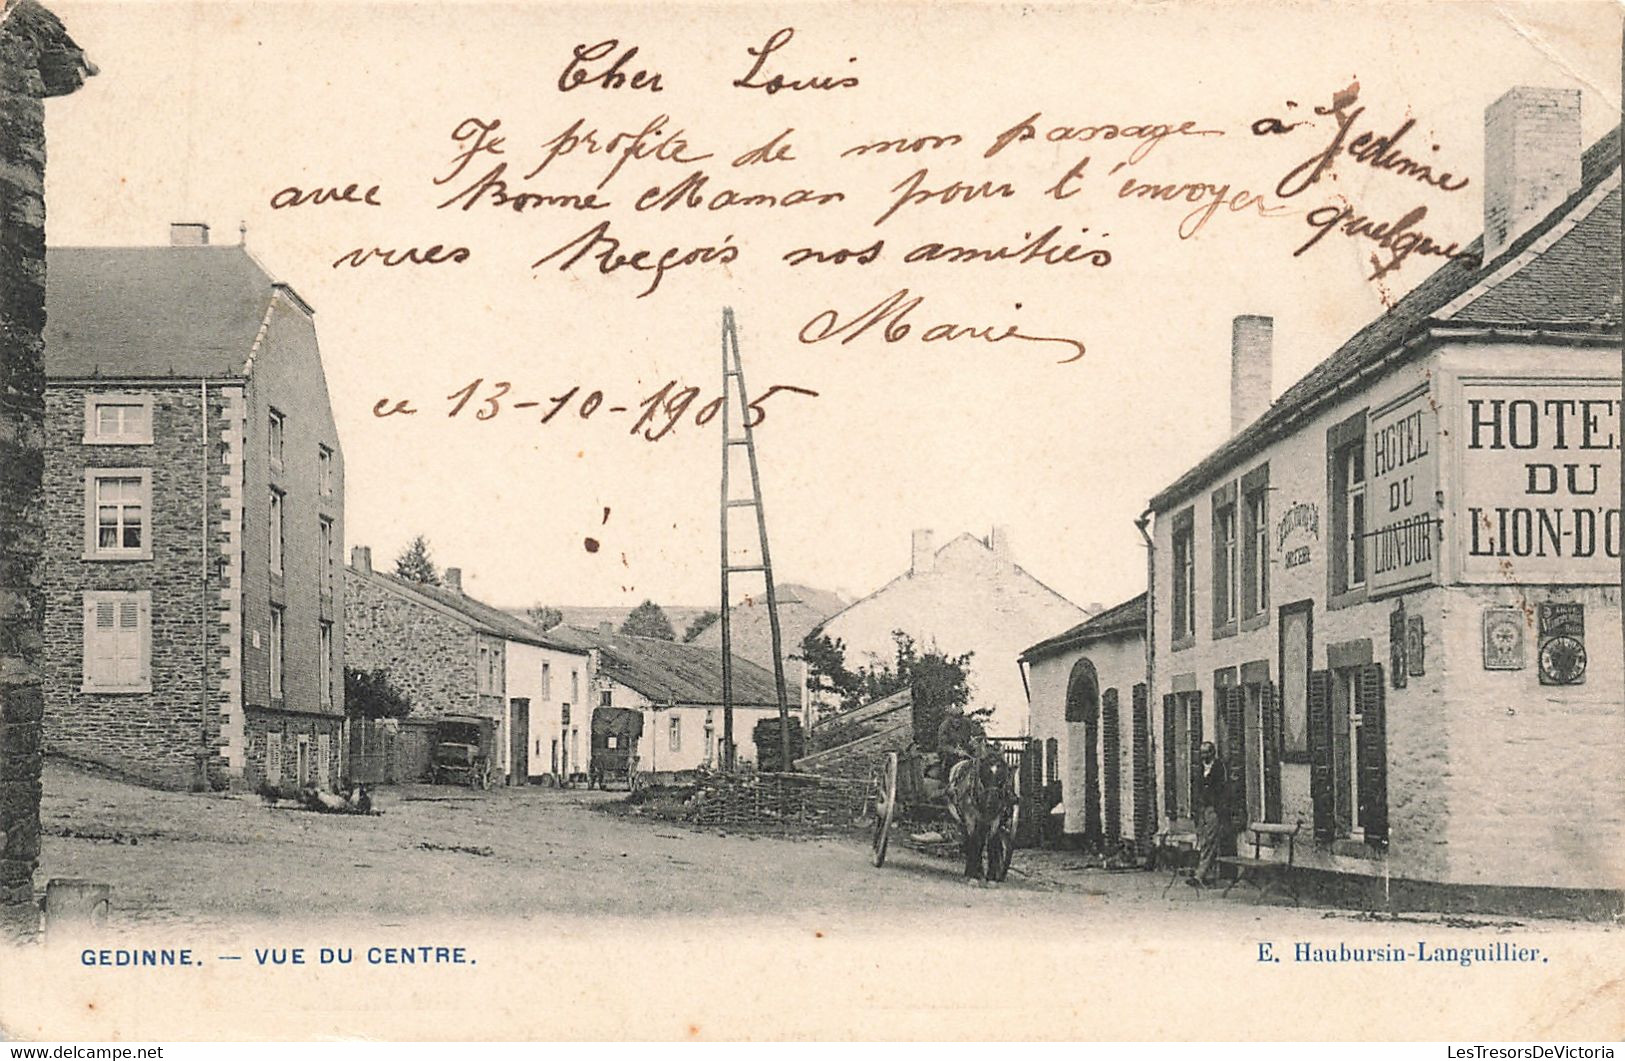 Cher Louis
Je profite de mon passage à Gedinne
avec Bonne Maman pour t'envoyer quelques
vues Reçois nos amitiés
Marie
ce 13-10-1905
HOTEL
DU
LION-D'OR
HOTEL
DU
LION-D'O
GEDINNE. — VUE DU CENTRE.
E. Haubursin-Languillier.
LesTresorsDeVictoria
https://www.delcampe.net